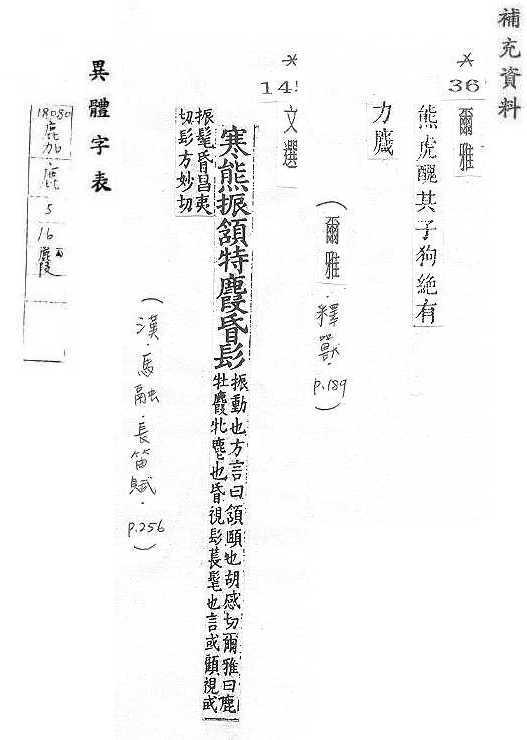 補充資料
*
36
爾雅
熊虎醜其子狗絕有
力麙
(爾雅.釋獸.p.189)
*
14
文選
寒熊振頷特麚昏髟
振動也方言曰頷頤也胡感切爾雅曰鹿
牡麚牝麀也昏視髟萇髦也言或顧視或
振髦昏昌夷
切髟方妙切
(漢.馬融.長笛賦.p.256)
異體字表
18080
鹿加.鹿
5
16
麚